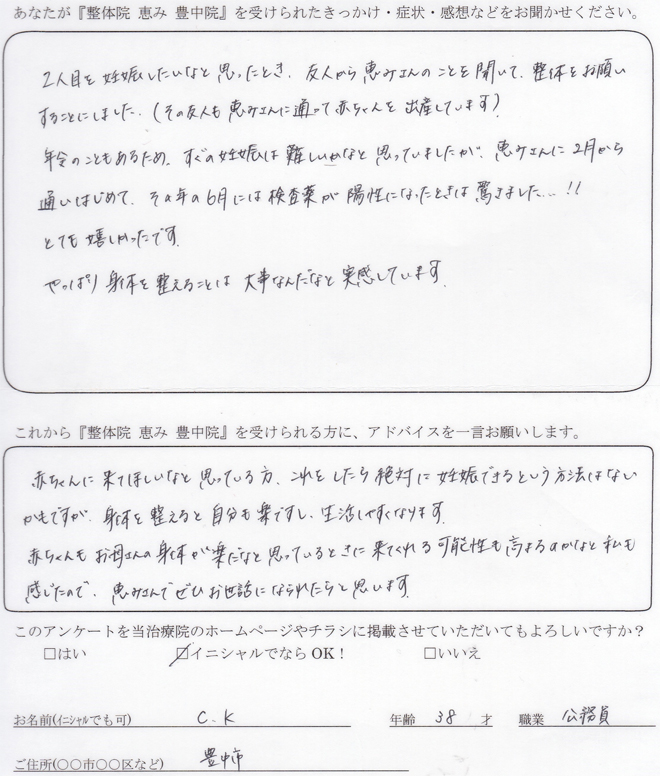 あなたが『整体院 恵み 豊中院』を受けられたきっかけ・症状・感想などをお聞かせください。
2人目を妊娠したいなと思ったとき、友人から恵みさんのことを聞いて、整体をお願い
することにしました。(その友人も恵みさんに通って赤ちゃんを出産しています)
年令のこともあるため、すぐの妊娠は難しいかなと思っていましたが、恵みさんに2月から
通いはじめて、その年の6月には検査薬が陽性になったときは驚きました…!!
とても嬉しかったです。
やっぱり身体を整えることは大事なんだなと実感しています。
これから『整体院 恵み 豊中院』を受けられる方に、アドバイスを一言お願いします。
赤ちゃんに来てほしいなと思っている方、これをしたら絶対に妊娠できるという方法はない
かもですが、身体を整えると自分も楽ですし、生活しやすくなります。
赤ちゃんもお母さんの身体が楽だなと思っているときに来てくれる可能性も高まるのかなと私も
感じたので、恵みさんでぜひお世話になられたらと思います。
このアンケートを当治療院のホームページやチラシに掲載させていただいてもよろしいですか?
□はい ☑イニシャルでならOK! □いいえ
お名前(イニシャルでも可) C.K 年齢 38 才 職業 公務員
ご住所(〇〇市〇〇区など) 豊中市